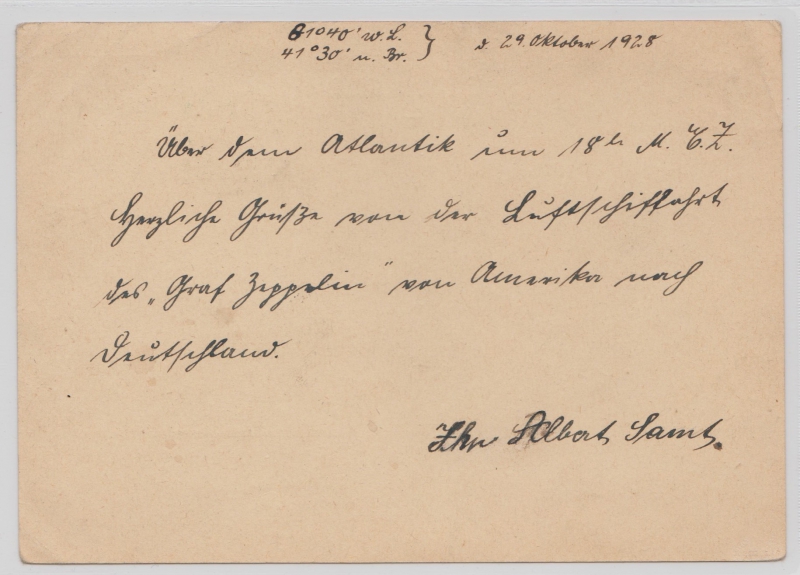 61°40' w. L. } d. 29. Oktober 1928
41°30' n. Br.
Über dem Atlantik um 18 h M. E. Z.
Herzliche Grüße von der Luftschiffahrt
des „Graf Zeppelin" von Amerika nach
Deutschland.
Ihr Albert Samt.